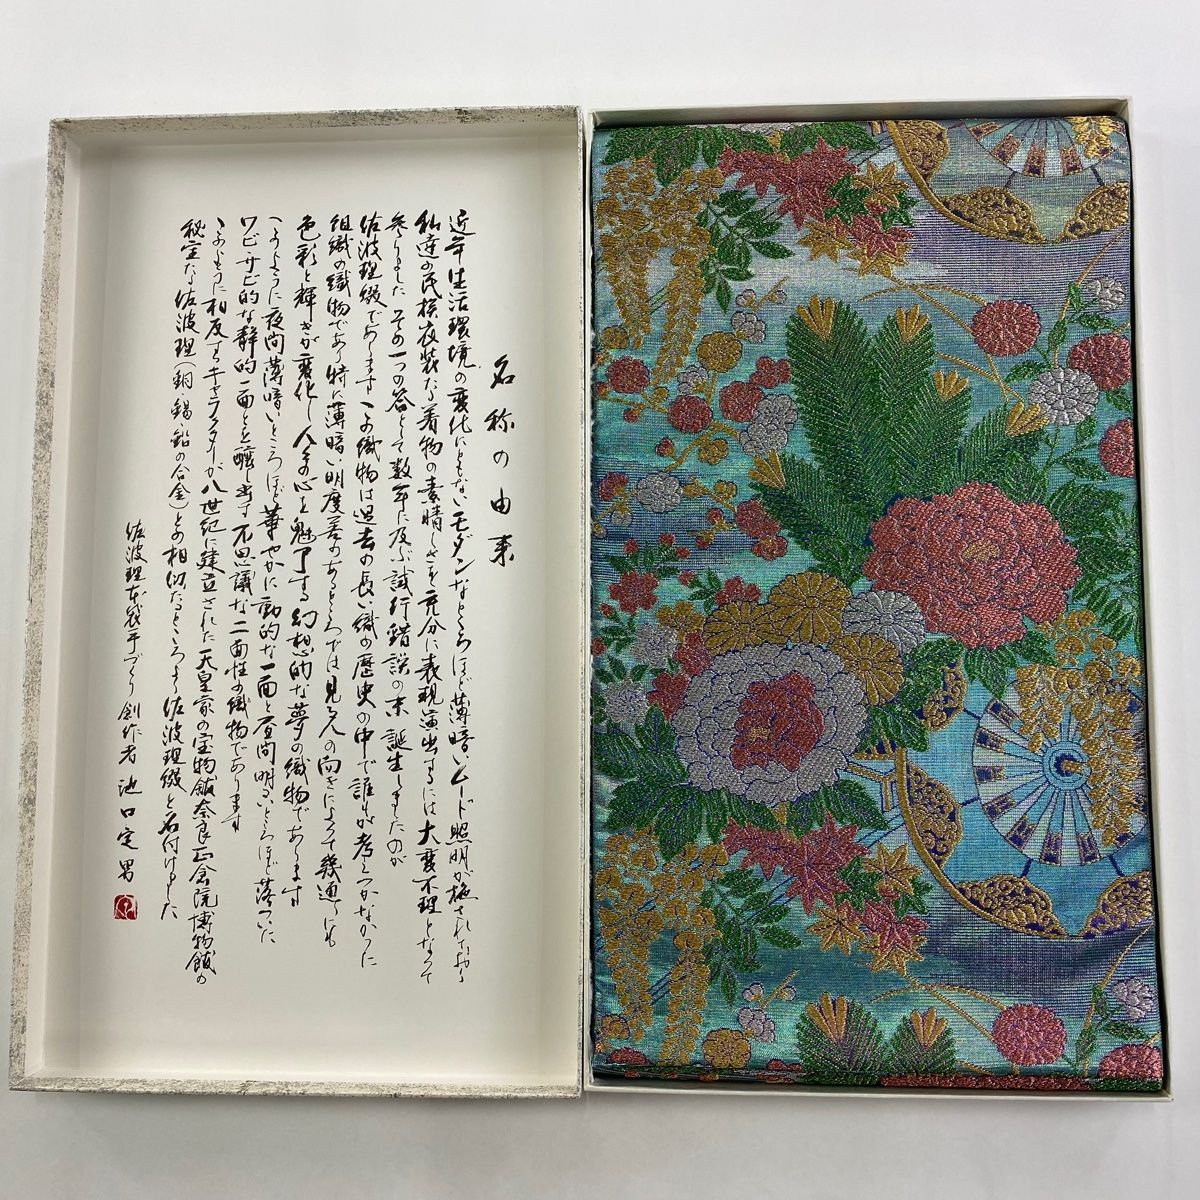 名称の由来
近年生活環境の変化にともないモダンなところほど薄暗いムード照明が施されており
私達の民族衣装たる着物の素晴しさを充分に表現演出するには大変不理となって
参りました その一つの答として数年に及ぶ試行錯誤の末誕生しましたのが
佐波理綴であります この織物は過去の長い織の歴史の中で誰もが考えつかなかった
組織の織物であり特に薄暗い明度差のあるところでは見る人の向きによって幾通りにも
色彩と輝きが変化し人の心を魅了する幻想的な夢の織物であります
このように夜間薄暗いところほど華やかに動的な一面と昼間明るいところほど落ついた
ワビサビ的な静的一面とを醸し出す不思議な二面性の織物であります
このように相反するキャラクターが八世紀に建立された天皇家の宝物館奈良正倉院博物館の
秘宝たる佐波理(銅 錫 鉛の合金)との相似たるところより佐波理綴と名付けました
佐波理本袋手づくり創作者 池口定男